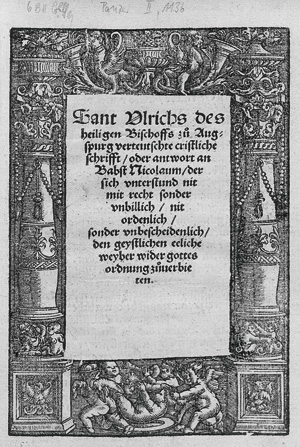 Panzer II, 1136
Sant Vlrichs des
heiligen Bischoffs zů Aug-
spurg verteutschte cristliche
schrifft / oder antwort an
Babst Nicolaum / der
sich vnterstund nit
mit recht sonder
vnbillich / nit
ordenlich /
sonder vnbescheidenlich /
den geystlichen eeliche
weyber wider gottes
ordnung zůuerbie
ten.